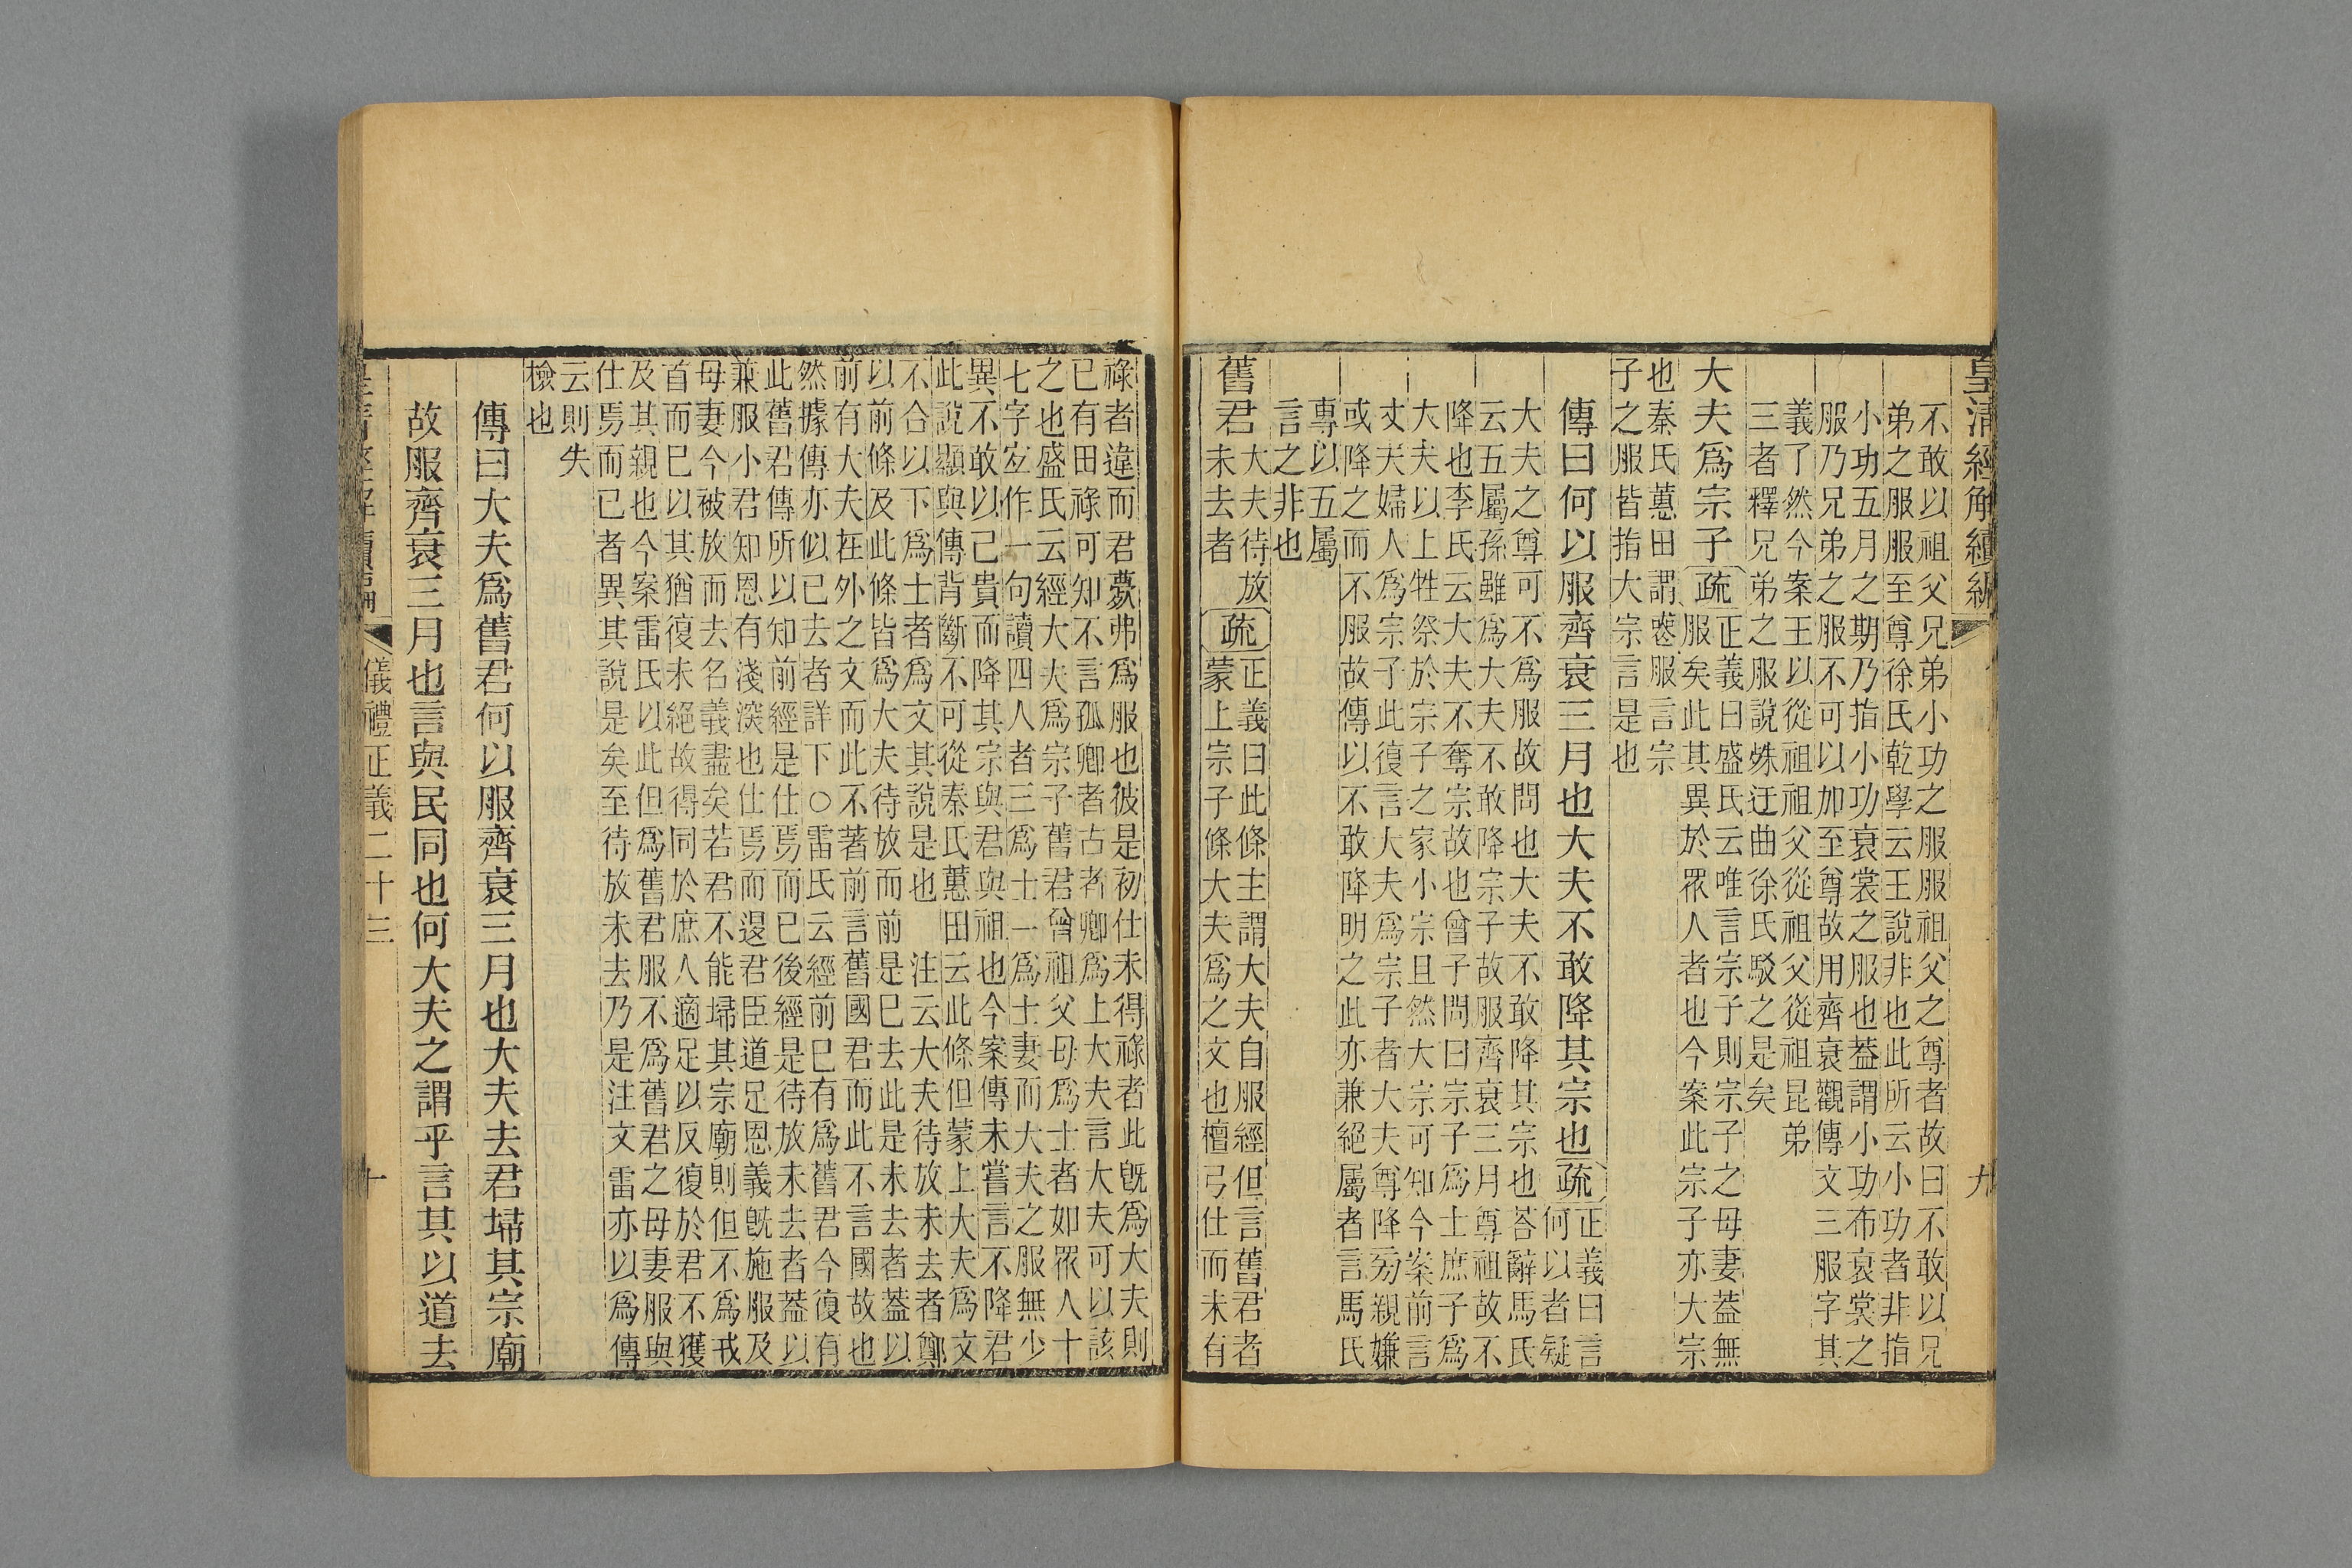 皇清經解續編
九
不敢以祖父兄弟小功之服服祖父之尊者故曰不敢以兄
弟之服服至尊徐氏乾學云王說非也此所云小功者非指
小功五月之期乃指小功衰裳之服也葢謂小功布衰裳之
服乃兄弟之服不可以加至尊故用齊衰觀傳文三服字其
義了然今案王以從祖祖父從祖父從祖昆弟
三者釋兄弟之服說姝迂曲徐氏駁之是矣
大夫爲宗子
疏
正義曰盛氏云唯言宗子則宗子之母妻葢無
服矣此其異於眾人者也今案此宗子亦大宗
也秦氏蕙田謂蕙服言宗
子之服皆指大宗言是也
傳曰何以服齊衰三月也大夫不敢降其宗也
疏
正義曰言
何以者疑
大夫之尊可不爲服故問也大夫不敢降其宗也荅辭馬氏
云五屬孫雖爲大夫不敢降宗子故服齊衰三月尊祖故不
降也李氏云大夫不奪宗故也曾子問曰宗子爲士庶子爲
大夫以上牲祭於宗子之家小宗且然大宗可知今案前言
丈夫婦人爲宗子此復言大夫爲宗子者大夫尊降旁親嫌
或降之而不服故傳以不敢降明之此亦兼絕屬者言馬氏
專以五屬
言之非也
舊君
大夫待放
未去者
疏
正義曰此條主謂大夫自服經但言舊君者
蒙上宗子條大夫爲之文也檀弓仕而未有
祿者違而君薨弗爲服也彼是初仕未得祿者此旣爲大夫則
已有田祿可知不言孤卿者古者卿爲上大夫言大夫可以該
之也盛氏云經大夫爲宗子舊君曾祖父母爲士者如眾人十
七字宐作一句讀四人者三爲士一爲士妻而大夫之服無少
異不敢以己貴而降其宗與君與祖也今案傳未嘗言不降君
此說顯與傳背斷不可從秦氏蕙田云此條但蒙上大夫爲文
不合以下爲士者爲文其說是也　注云大夫待放未去者鄭
以前條及此條皆爲大夫待放而前是已去此是未去者葢以
前有大夫在外之文而此不著前言舊國君而此不言國故也
然據傳亦似已去者詳下○雷氏云經前已有爲舊君今復有
此舊君傳所以知前經是仕焉而已後經是待放未去者葢以
兼服小君知恩有淺深也仕焉而退君臣道足恩義旣施服及
母妻今被放而去名義盡矣若君不能埽其宗廟則但不爲戎
首而已以其猶復未絕故得同於庶人適足以反復於君不獲
及其親也今案雷氏以此但爲舊君服不爲舊君之母妻服與
仕焉而已者異其說是矣至待放未去乃是注文雷亦以爲傳
云則失
檢也
傳曰大夫爲舊君何以服齊衰三月也大夫去君埽其宗廟
故服齊衰三月也言與民同也何大夫之謂乎言其以道去
儀禮正義二十三
十